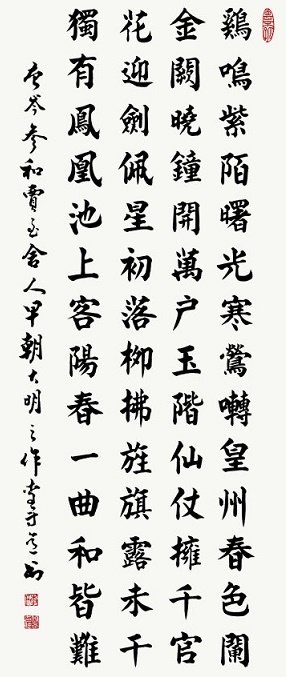 鷄鳴紫陌曙光寒鶯囀皇州春色闌
金闕曉鐘開萬户玉階仙仗擁千官
花迎劍佩星初落柳拂旌旗露未干
獨有鳳凰池上客陽春一曲和皆難
唐岑参和賈至舍人早朝大明之作